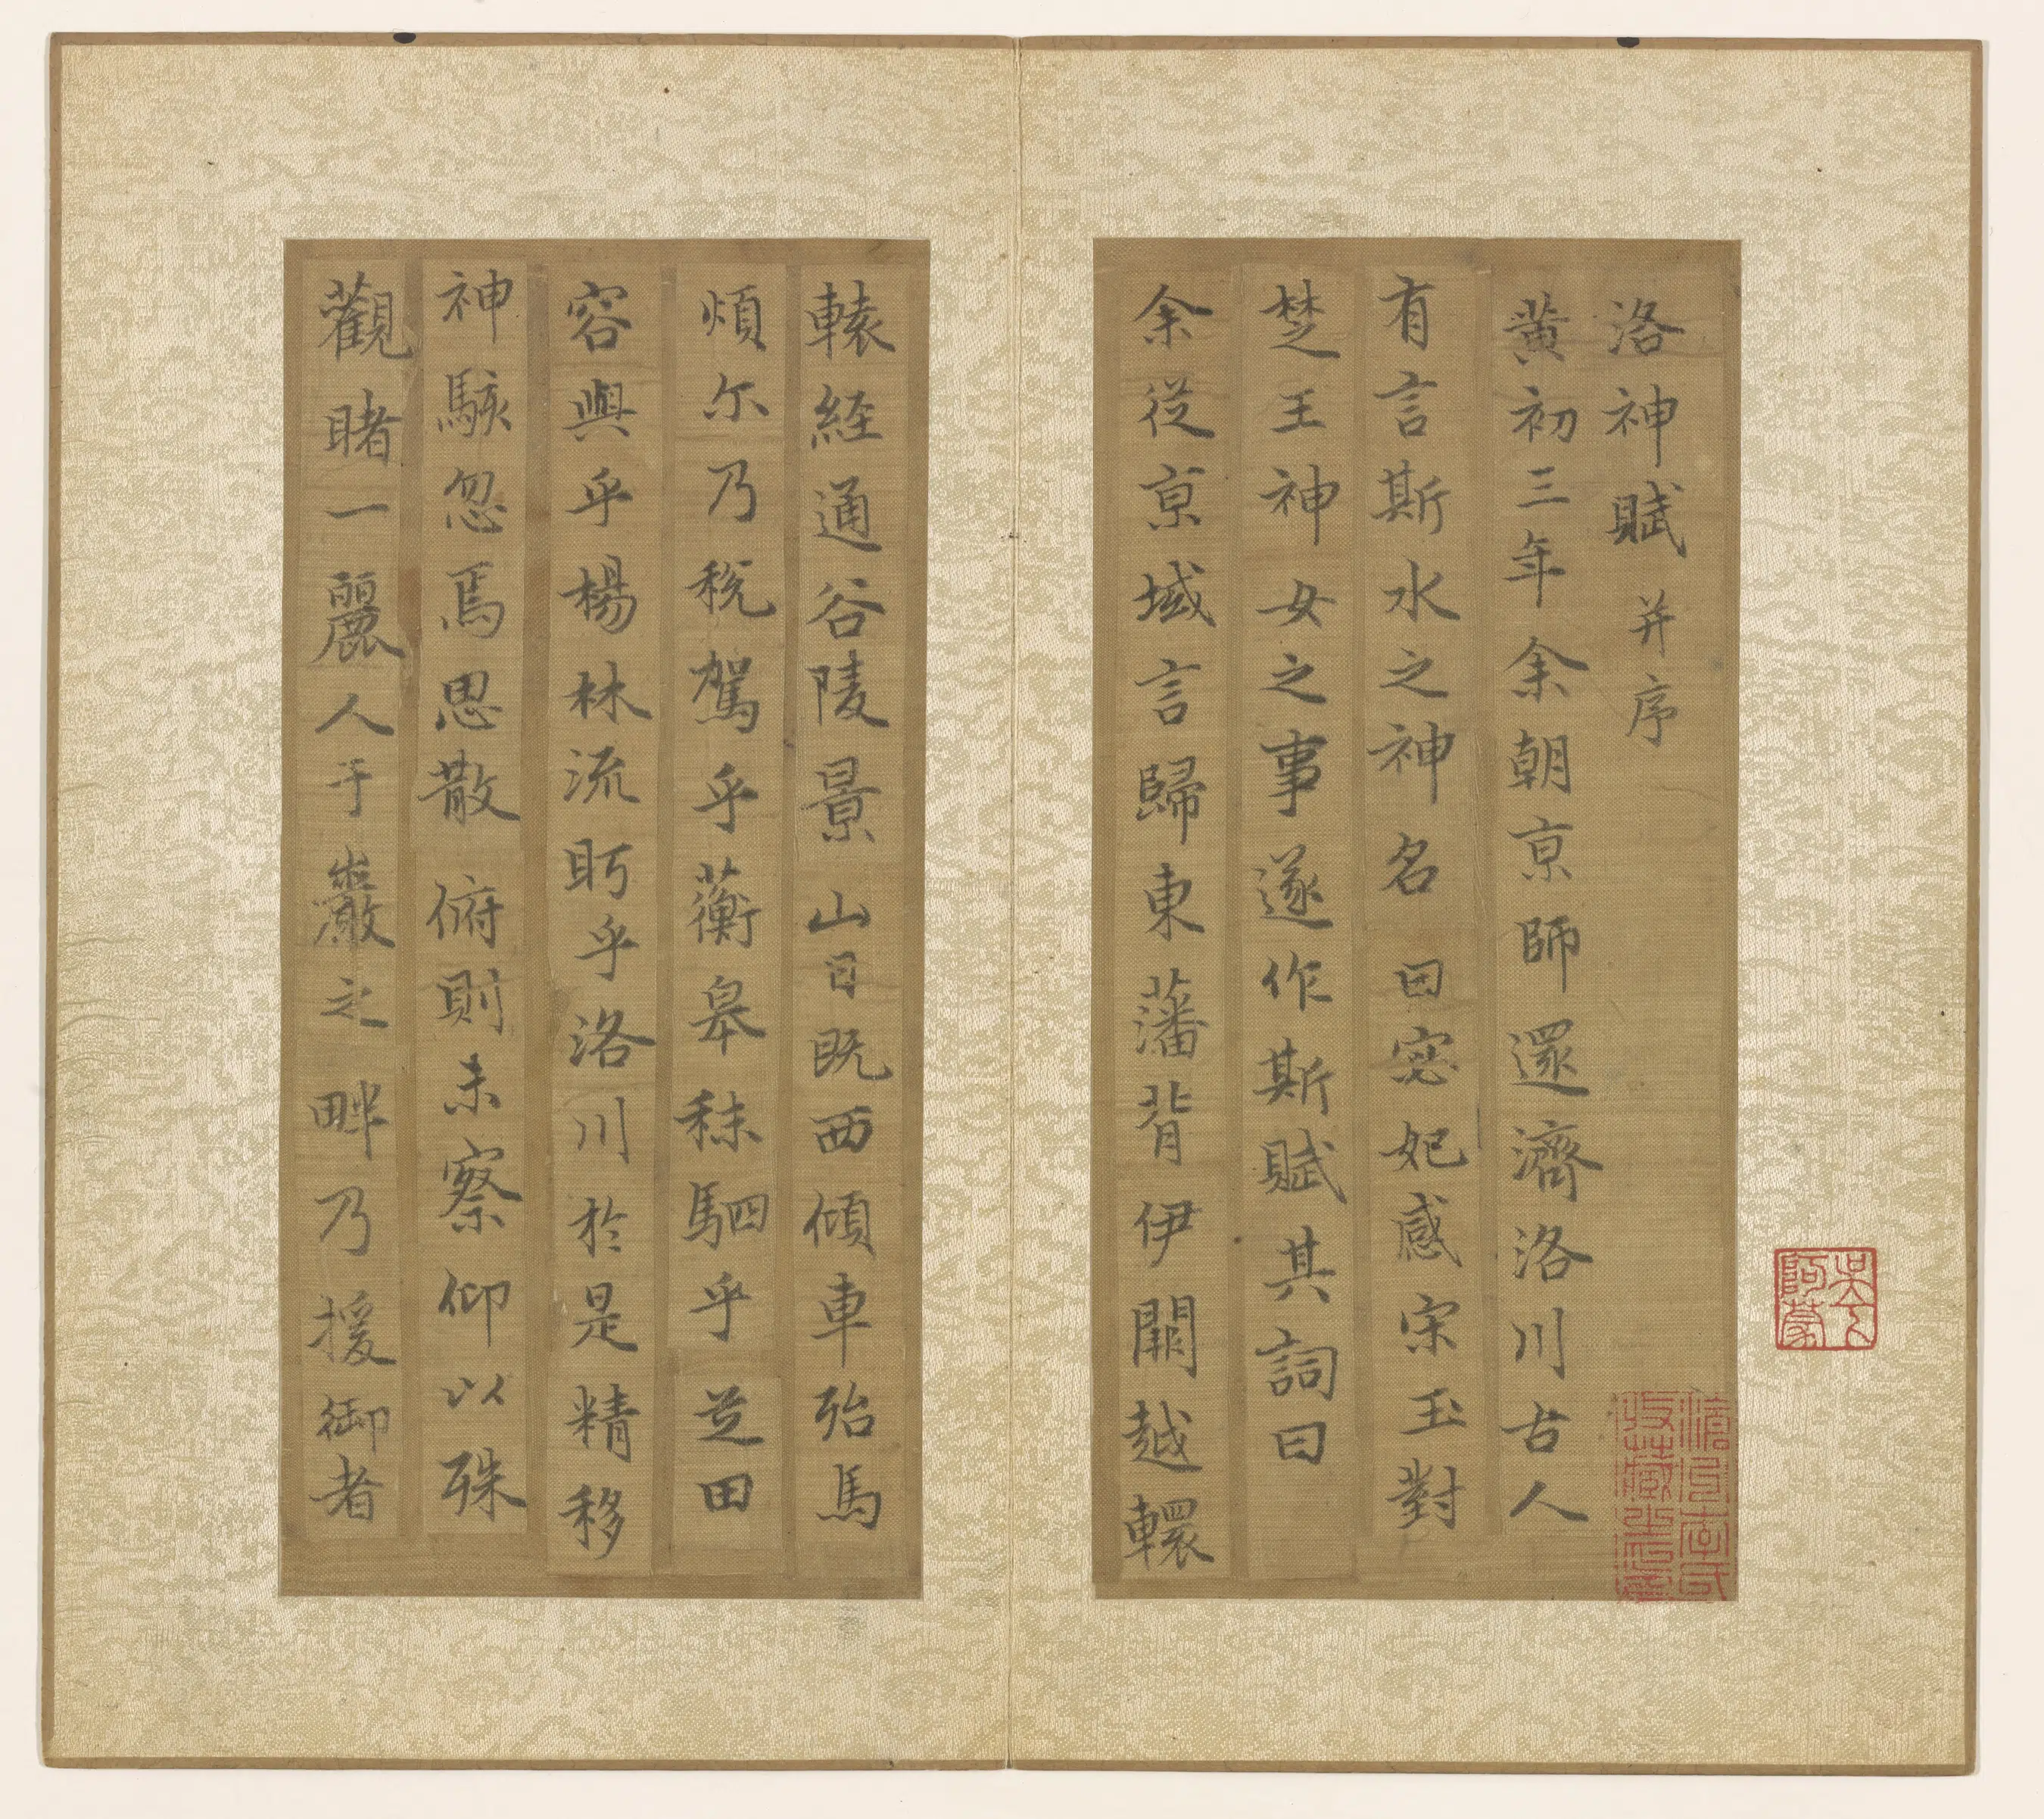 洛神賦并序
黃初三年余朝京師還濟洛川古人
有言斯水之神名曰宓妃感宋玉對
楚王神女之事遂作斯賦其詞曰
余從京域言歸東藩背伊闕越轘
轅經通谷陵景山日既西傾車殆馬
煩尓乃稅駕乎蘅皋秣駟乎芝田
容與乎楊林流眄乎洛川於是精移
神駭忽焉思散俯則未察仰以殊
觀睹一麗人于巖之畔乃援御者
吳下阿蒙